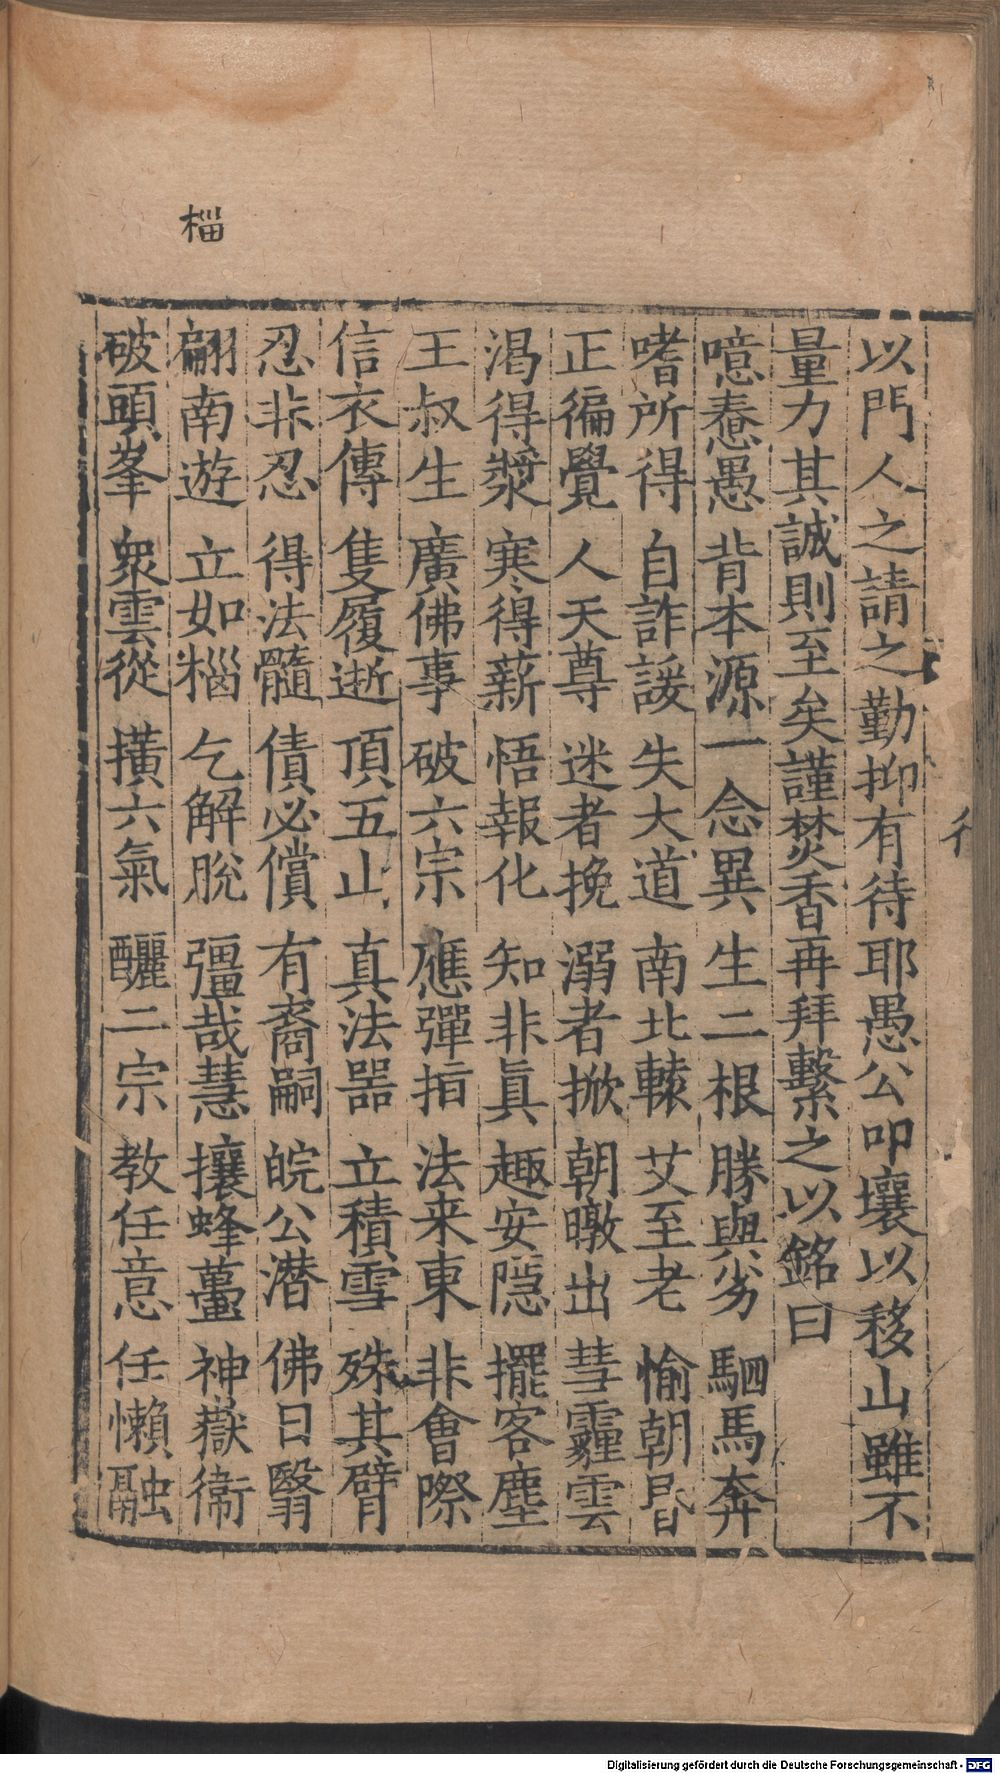 以門人之請之勤抑有待耶愚公叩壤以移山雖不
量力其誠則至矣謹焚香再拜繫之以銘曰
噫惷愚 背本源 一念異 生二根 勝與劣 駟馬奔
嗜所得 自詐諼 失大道 南北轅 艾至老 愉朝昬
正徧覺 人天尊 迷者挽 溺者掀 朝暾出 彗霾雲
渴得漿 寒得薪 悟報化 知非眞 趣安隱 擺客塵
王叔生 廣佛事 破六宗 應彈指 法来東 非會際
信衣傳 隻履逝 頂五山 真法器 立積雪 殊其臂
忍非忍 得法髓 債必償 有裔嗣 皖公潜 佛日翳
翩南遊 立如椔 乞解脫 彊哉慧 攘蜂蠆 神嶽衞
破頭峯 衆雲從 撗六氣 釃二宗 教任意 任懶融
椔
Digitalisierung gefördert durch die Deutsche Forschungsgemeinschaft - DFG